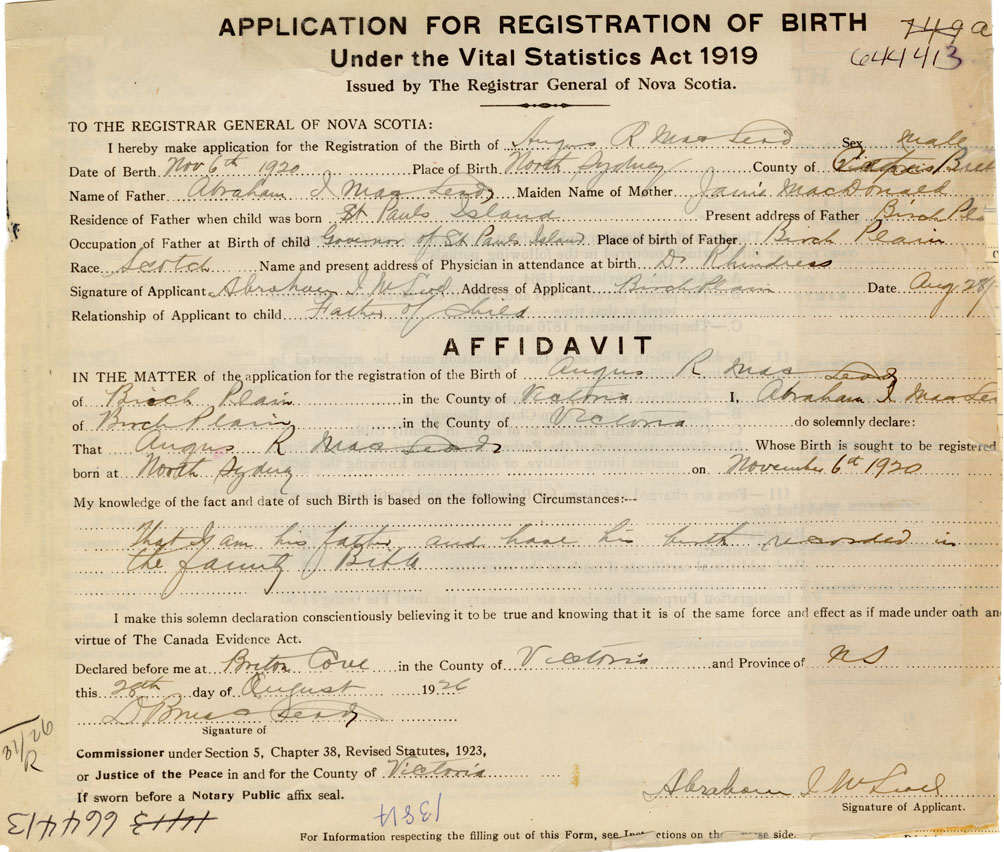 APPLICATION FOR REGISTRATION OF BIRTH
749a
Under the Vital Statistics Act 1919
644413
Issued by The Registrar General of Nova Scotia.
TO THE REGISTRAR GENERAL OF NOVA SCOTIA:
I hereby make application for the Registration of the Birth of Angus R MacLeod Sex male
Date of Berth Nov 6th 1920 Place of Birth North Sydney County of Bret
Name of Father Abraham J MacLeod Maiden Name of Mother Janie MacDonald
Residence of Father when child was born St Pauls Island Present address of Father Birch Pla
Occupation of Father at Birth of child Governor of St Pauls Island Place of birth of Father Birch Plain
Race Scotch Name and present address of Physician in attendance at birth Dr Rhindress
Signature of Applicant Abraham J McLeod Address of Applicant Birch Plain Date Aug 28
Relationship of Applicant to child Father of Child
AFFIDAVIT
IN THE MATTER of the application for the registration of the Birth of Angus R MacLeod
of Birch Plain in the County of Victoria I, Abraham J MacLeo
of Birch Plain in the County of Victoria do solemnly declare:
That Angus R MacLeod Whose Birth is sought to be registered
born at North Sydney on November 6th 1920
My knowledge of the fact and date of such Birth is based on the following Circumstances:--
That I am his father and have his birth recorded in
the family Bible
I make this solemn declaration conscientiously believing it to be true and knowing that it is of the same force and effect as if made under oath and
virtue of The Canada Evidence Act.
Declared before me at Breton Cove in the County of Victoria and Province of NS
this 28th day of August 1926
D B MacLeod
Signature of
31/26
R
Commissioner under Section 5, Chapter 38, Revised Statutes, 1923,
or Justice of the Peace in and for the County of Victoria
If sworn before a Notary Public affix seal.
Abraham J McLeod
Signature of Applicant.
664413
For Information respecting the filling out of this Form, see Inst ctions on the rse side.